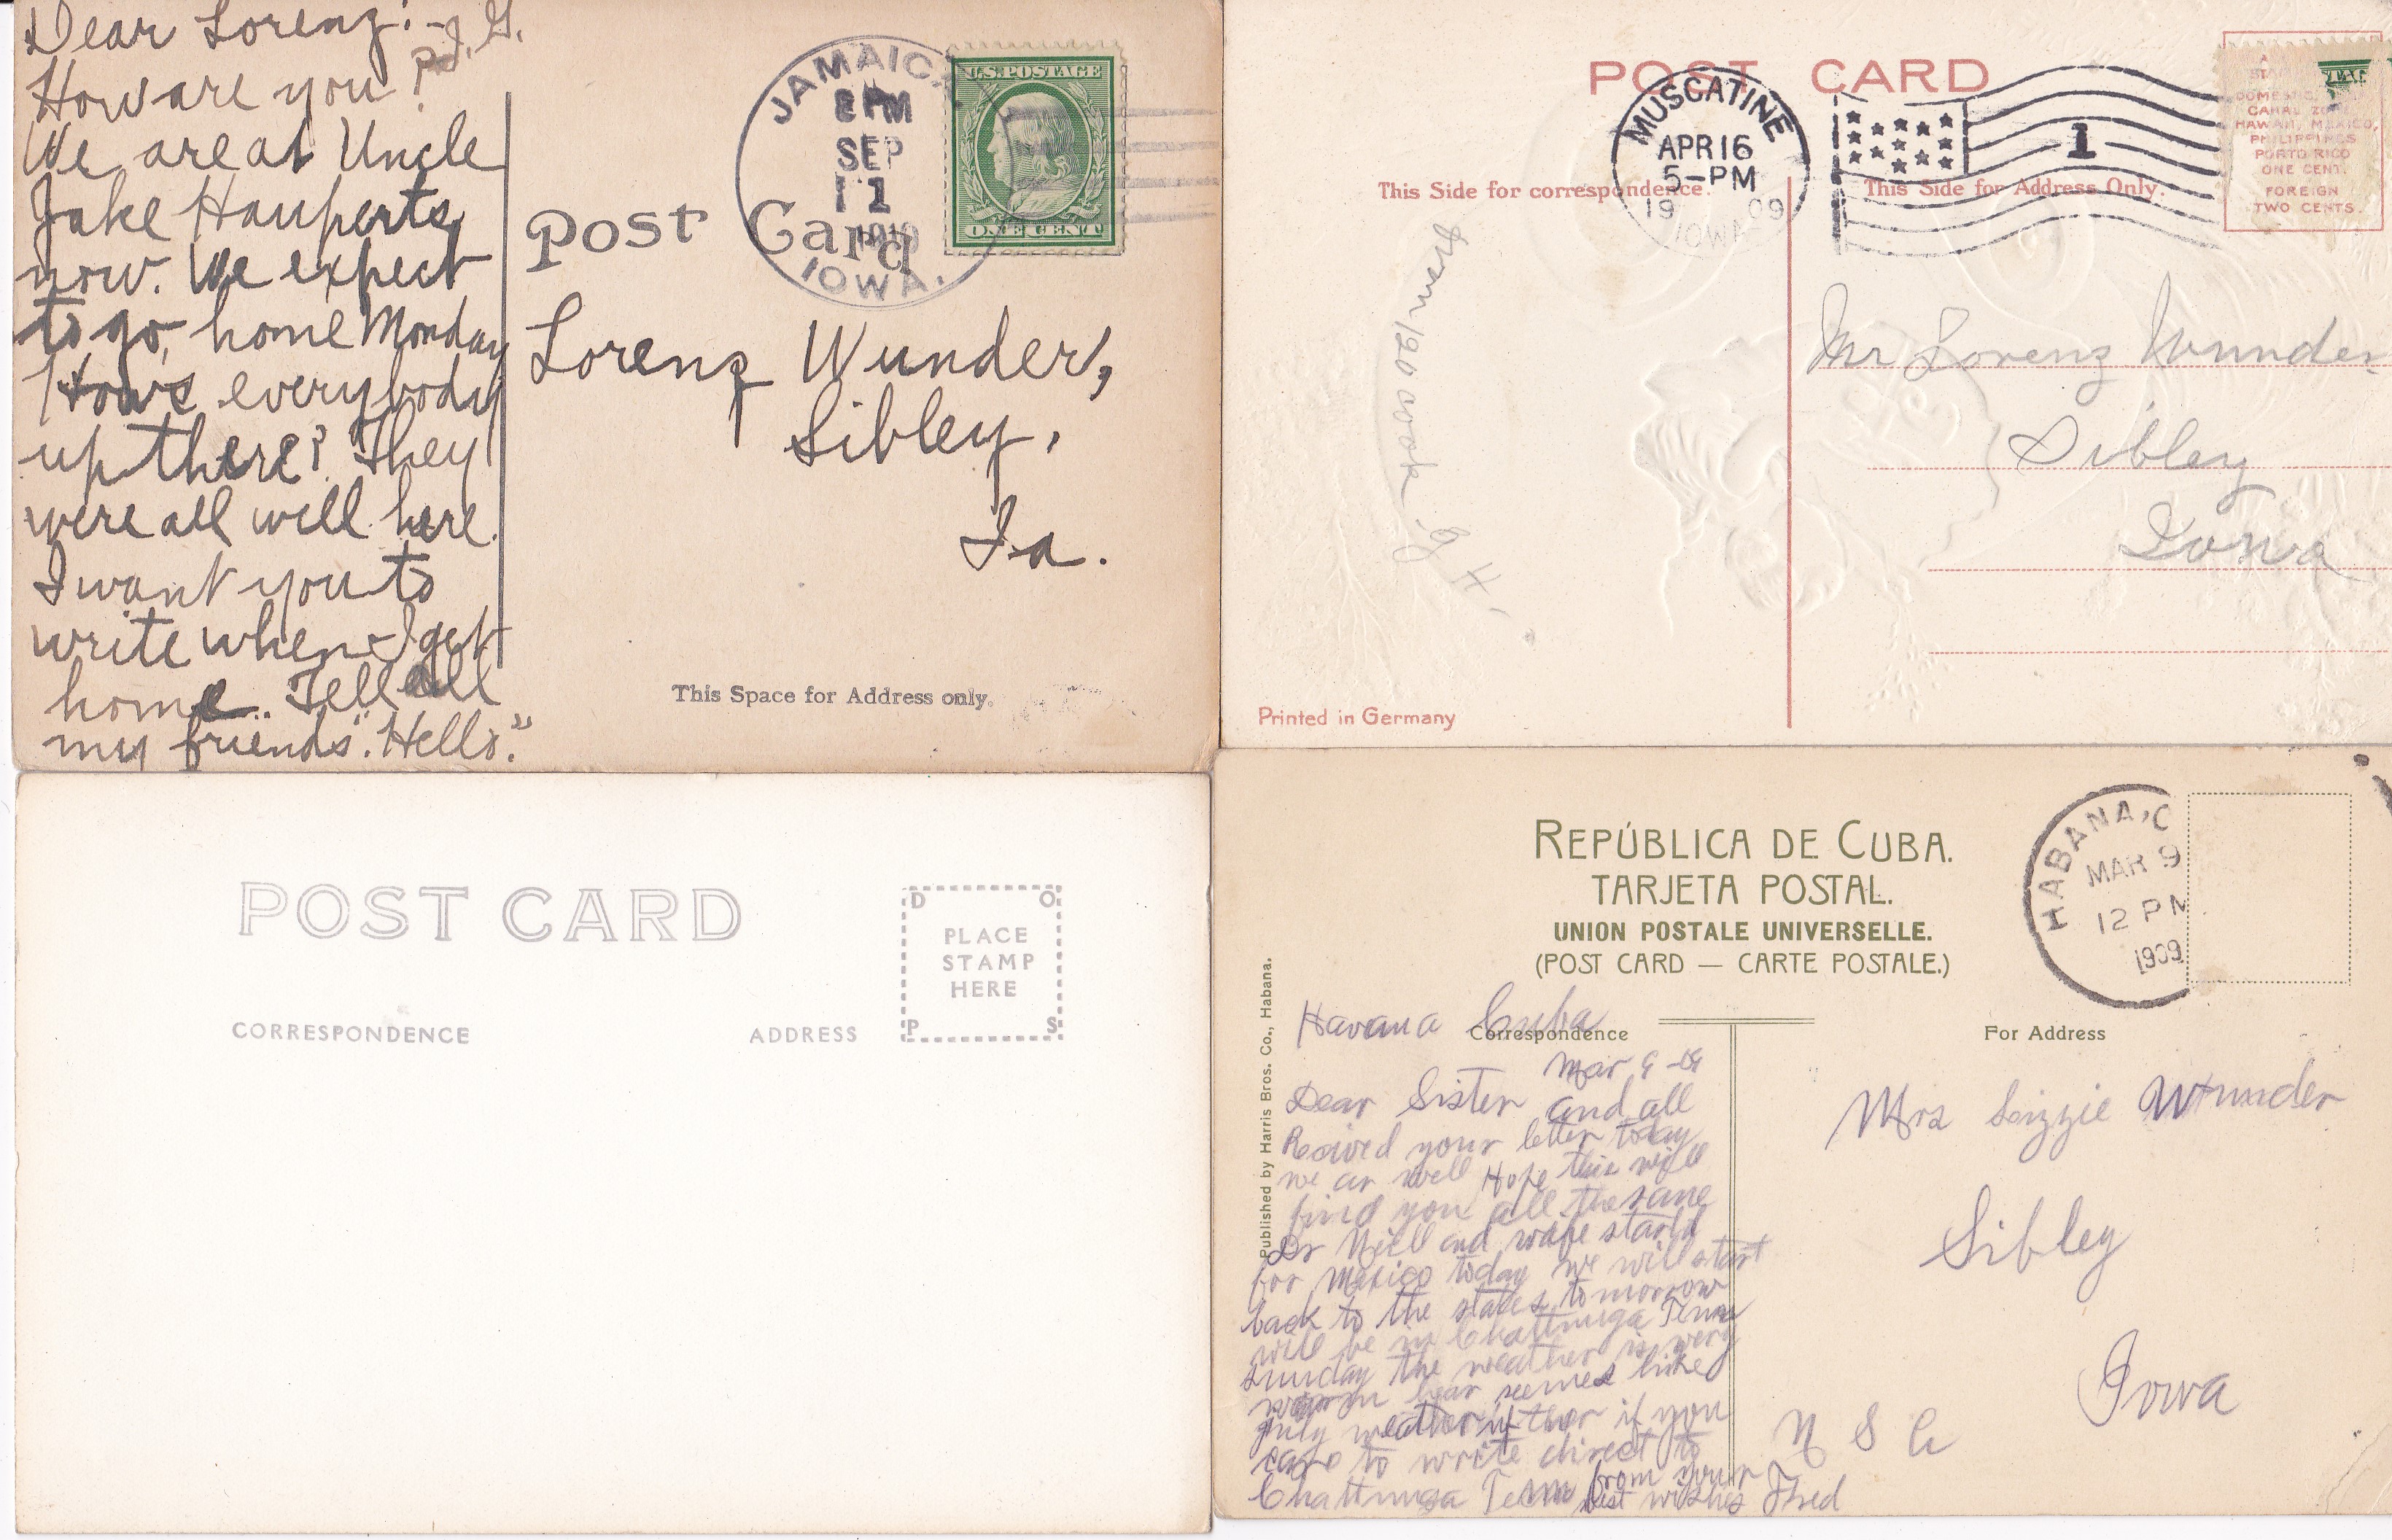 Dear Lorenz:-
J. G.
How are you?
We are at Uncle
Jake Hauperts
now. We expect
to go, home Monday
How's everybody
up there? They
were all well here.
I want you to
write when I get
home.. Tell all
my friends "Hello."
Post Card
JAMAICA
PM
SEP
IOWA.
U.S. POSTAGE
ONE CENT
Lorenz Wunder,
Sibley,
Ia.
This Space for Address only.
POST CARD
MUSCATINE
APR 16
5-PM
19 09
IOWA
1
This Side for correspondence.
This Side for Address Only.
DOMESTIC,
CANAL ZONE
HAWAII, MEXICO,
PHILIPPINES
PORTO RICO
ONE CENT.
FOREIGN
TWO CENTS.
From
Mr Lorenz Wunder
Sibley
Iowa
Printed in Germany
POST CARD
CORRESPONDENCE
ADDRESS
D O
PLACE
STAMP
HERE
P S
REPÚBLICA DE CUBA.
TARJETA POSTAL.
UNION POSTALE UNIVERSELLE.
(POST CARD — CARTE POSTALE.)
HABANA, C
MAR 9
12 PM
1909
Published by Harris Bros. Co., Habana.
Correspondence
For Address
Havana Cuba
Mar 9
Dear Sister and all
Recived your letter today
we ar well Hope this will
find you all the same
Dr Niell and wife startd
for Mexico today we will start
back to the states tomorrow
will be in Chattnuga Tenn
sunday the weather is very
warm hear seemes like
july weather if you
care to write direct to
Chattnuga Tenn from your
best wishes Fred
Mrs Lizzie Wunder
Sibley
Iowa